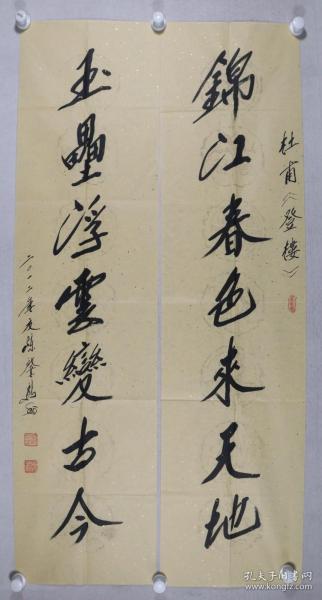 杜甫《登楼》
錦江春色來天地
玉壘浮雲變古今
二〇一二
孔夫子旧书网